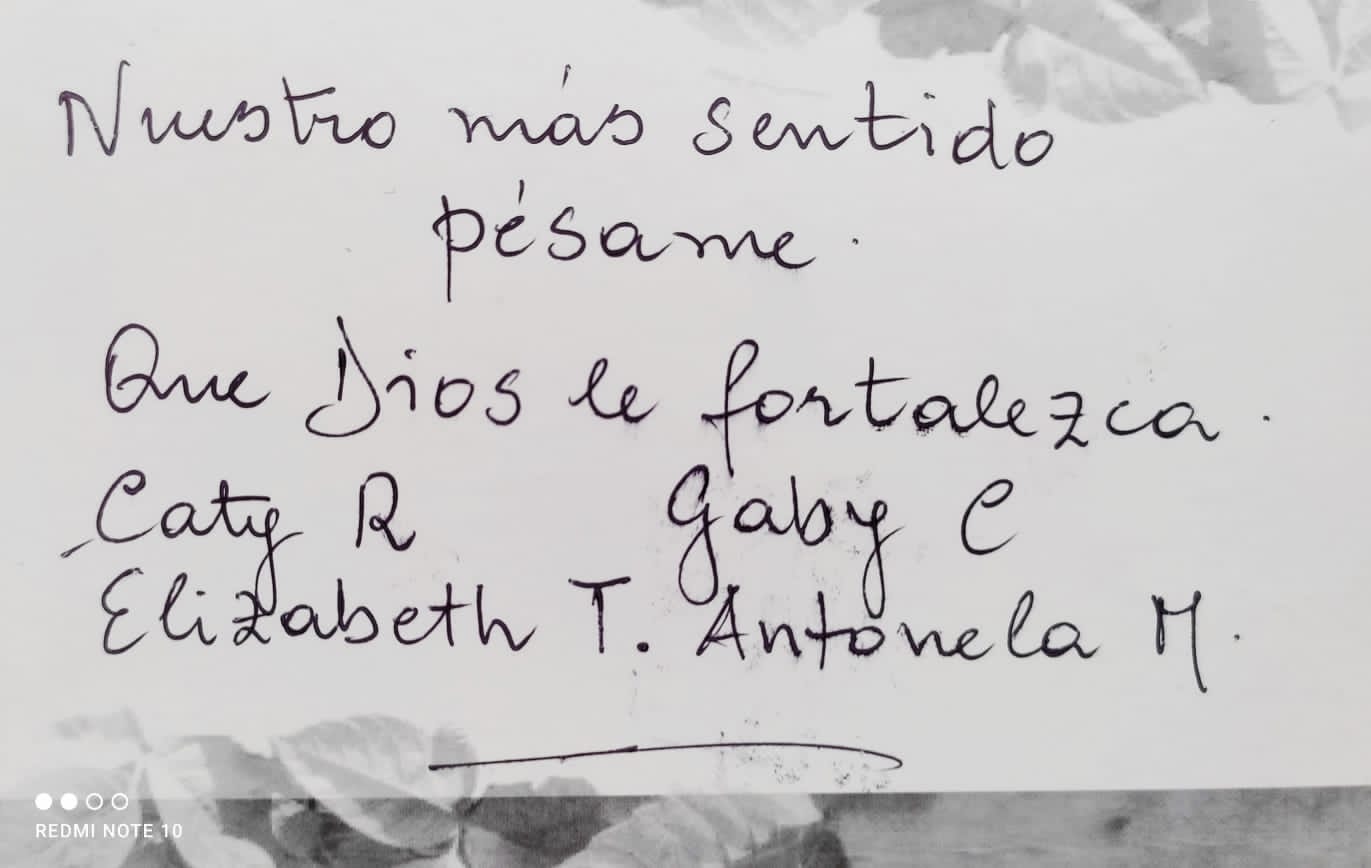 Nuestro más sentido
pésame.
Que Dios le fortalezca.
Caty R Gaby C
Elizabeth T. Antonela M.
REDMI NOTE 10